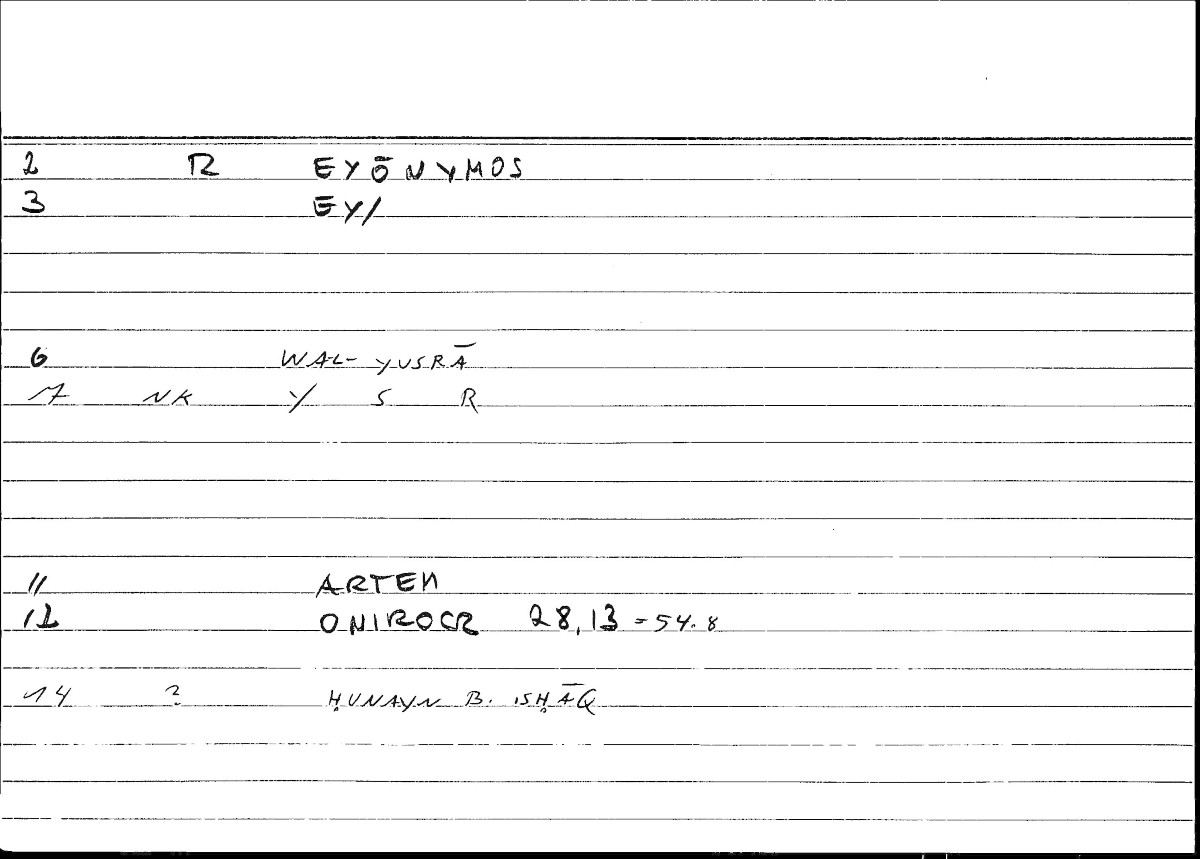 2 R EYŌNYMOS
3 EY/
6 WAL- YUSRĀ
17 NK Y S R
11 ARTEM
12 ONIROCR 28,13 = 54.8
14 ? ḤUNAYN B. ISḤĀQ